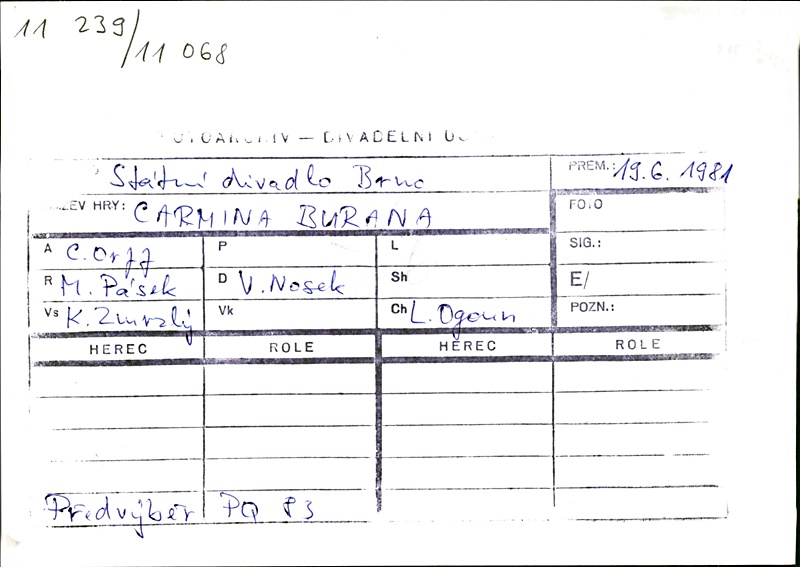 11 239/11 068
FOTOARCHIV — DIVADELNÍ
Státní divadlo Brno PREM.: 19.6. 1981
ZEV HRY: CARMINA BURANA FOTO
A C. Orff P L SIG.:
R M. Pásek D V. Nosek Sh E/
Vs K. Zmrzlý Vk Ch L. Ogoun POZN.:
HEREC ROLE HEREC ROLE
Předvýběr PQ 83